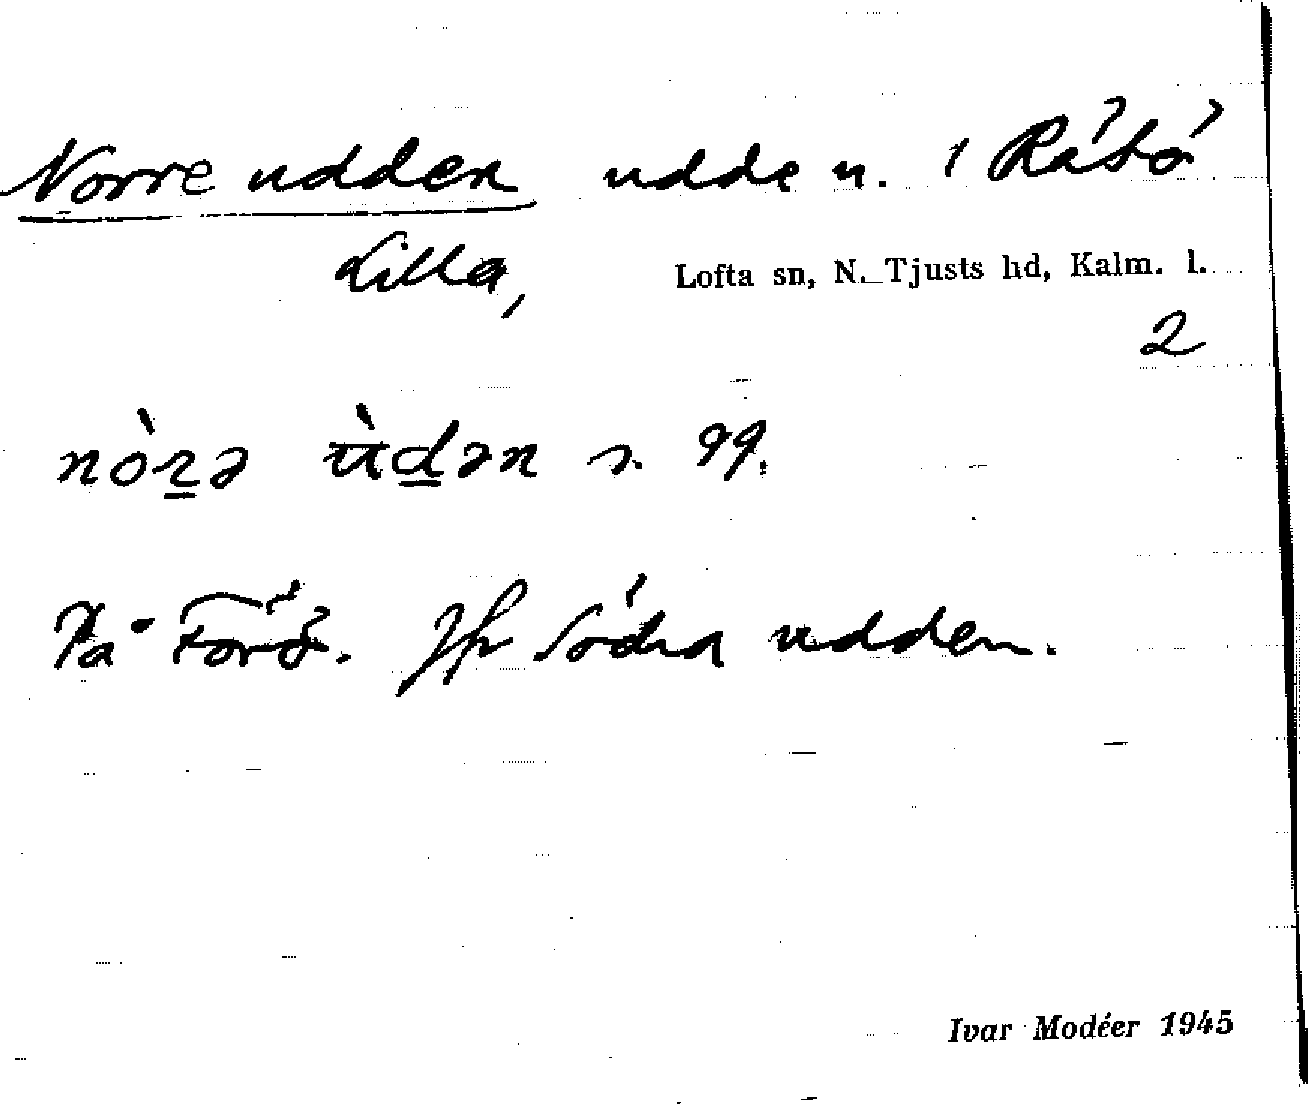 Norre udden udde n. i Råbö
Lilla,
Lofta sn, N. Tjusts hd, Kalm. l.
2
nòrə ùdən s. 99.
På Forö. Jfr Södra udden.
Ivar Modéer 1945